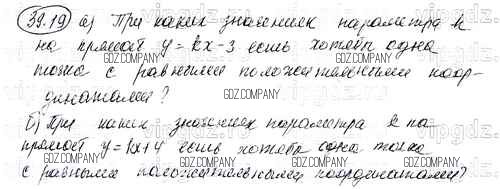 39.19 а) При каких значениях параметра k
на прямой y = kx - 3 есть хотя бы одна
точка с равными положительными коор-
динатами?
б) При каких значениях параметра k на
прямой y = kx + 4 есть хотя бы одна точка
с равными положительными координатами?
GDZ.COMPANY
vipgdz.ru